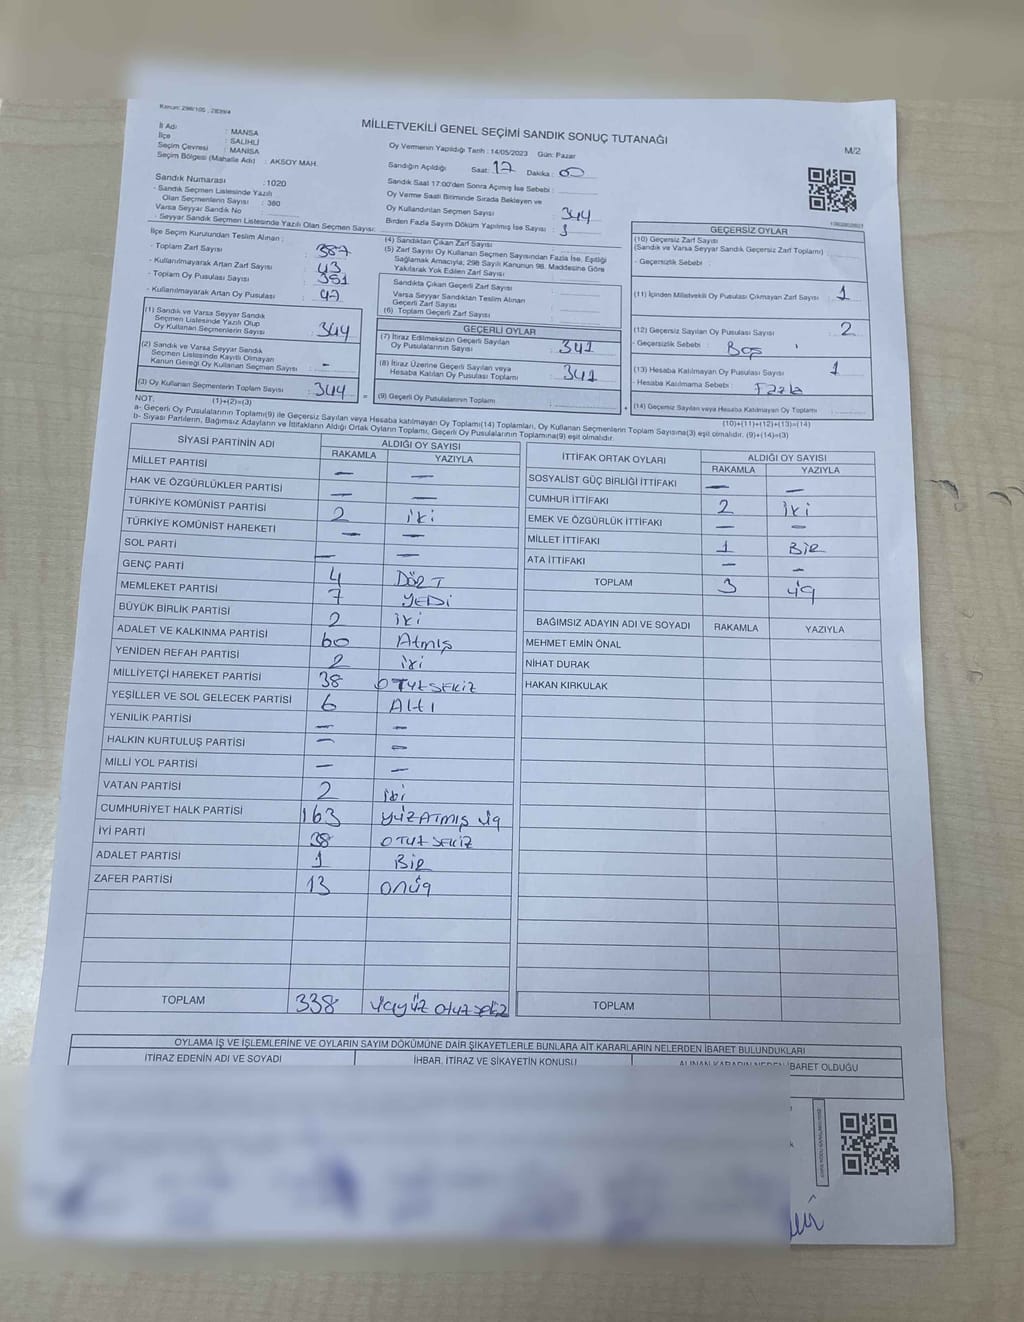 Kanun: 298/105 , 2839/4
MİLLETVEKİLİ GENEL SEÇİMİ SANDIK SONUÇ TUTANAĞI
M/2
İl Adı : MANİSA
İlçe : SALİHLİ
Seçim Çevresi : MANİSA
Seçim Bölgesi (Mahalle Adı) : AKSOY MAH.
Oy Vermenin Yapıldığı Tarih : 14/05/2023 Gün: Pazar
Sandığın Açıldığı Saat: 17 Dakika: 00
Sandık Saat 17:00'den Sonra Açılmış İse Sebebi :
Oy Verme Saati Bitiminde Sırada Bekleyen ve
Oy Kullandırılan Seçmen Sayısı : 344
Birden Fazla Sayım Döküm Yapılmış İse Sayısı :
Sandık Numarası : 1020
- Sandık Seçmen Listesinde Yazılı
Olan Seçmenlerin Sayısı : 380
Varsa Seyyar Sandık No
- Seyyar Sandık Seçmen Listesinde Yazılı Olan Seçmen Sayısı:
İlçe Seçim Kurulundan Teslim Alınan ;
- Toplam Zarf Sayısı : 387
- Kullanılmayarak Artan Zarf Sayısı : 43
- Toplam Oy Pusulası Sayısı : 391
- Kullanılmayarak Artan Oy Pusulası : 47
(1) Sandık ve Varsa Seyyar Sandık
Seçmen Listesinde Yazılı Olup
Oy Kullanan Seçmenlerin Sayısı : 344
(2) Sandık ve Varsa Seyyar Sandık
Seçmen Listesinde Kayıtlı Olmayan
Kanun Gereği Oy Kullanan Seçmen Sayısı : -
(3) Oy Kullanan Seçmenlerin Toplam Sayısı : 344
(4) Sandıktan Çıkan Zarf Sayısı :
(5) Zarf Sayısı Oy Kullanan Seçmen Sayısından Fazla İse, Eşitliği
Sağlamak Amacıyla; 298 Sayılı Kanunun 98. Maddesine Göre
Yakılarak Yok Edilen Zarf Sayısı :
Sandıkta Çıkan Geçerli Zarf Sayısı :
Varsa Seyyar Sandıktan Teslim Alınan
Geçerli Zarf Sayısı :
(6) Toplam Geçerli Zarf Sayısı :
GEÇERLİ OYLAR
(7) İtiraz Edilmeksizin Geçerli Sayılan
Oy Pusulalarının Sayısı : 341
(8) İtiraz Üzerine Geçerli Sayılan veya
Hesaba Katılan Oy Pusulası Toplamı : 341
(9) Geçerli Oy Pusulalarının Toplamı
GEÇERSİZ OYLAR
(10) Geçersiz Zarf Sayısı
(Sandık ve Varsa Seyyar Sandık Geçersiz Zarf Toplamı) :
- Geçersizlik Sebebi :
(11) İçinden Milletvekili Oy Pusulası Çıkmayan Zarf Sayısı : 1
(12) Geçersiz Sayılan Oy Pusulası Sayısı : 2
- Geçersizlik Sebebi : Boş
(13) Hesaba Katılmayan Oy Pusulası Sayısı : 1
- Hesaba Katılmama Sebebi : Fazla
(14) Geçersiz Sayılan veya Hesaba Katılmayan Oy Toplamı :
NOT: (1)+(2)=(3)
(10)+(11)+(12)+(13)=(14)
a- Geçerli Oy Pusulalarının Toplamı(9) ile Geçersiz Sayılan veya Hesaba katılmayan Oy Toplamı(14) Toplamları, Oy Kullanan Seçmenlerin Toplam Sayısına(3) eşit olmalıdır. (9)+(14)=(3)
b- Siyasi Partilerin, Bağımsız Adayların ve İttifakların Aldığı Ortak Oyların Toplamı, Geçerli Oy Pusulalarının Toplamına(9) eşit olmalıdır.
SİYASİ PARTİNİN ADI ALDIĞI OY SAYISI
RAKAMLA YAZIYLA
MİLLET PARTİSİ — —
HAK VE ÖZGÜRLÜKLER PARTİSİ — —
TÜRKİYE KOMÜNİST PARTİSİ 2 iki
TÜRKİYE KOMÜNİST HAREKETİ — —
SOL PARTİ — —
GENÇ PARTİ 4 DÖRT
MEMLEKET PARTİSİ 7 YEDİ
BÜYÜK BİRLİK PARTİSİ 2 iki
ADALET VE KALKINMA PARTİSİ 60 Atmış
YENİDEN REFAH PARTİSİ 2 iki
MİLLİYETÇİ HAREKET PARTİSİ 38 OTUZSEKİZ
YEŞİLLER VE SOL GELECEK PARTİSİ 6 ALTI
YENİLİK PARTİSİ — —
HALKIN KURTULUŞ PARTİSİ — —
MİLLİ YOL PARTİSİ — —
VATAN PARTİSİ 2 iki
CUMHURİYET HALK PARTİSİ 163 YÜZATMIŞ üç
İYİ PARTİ 38 OTUZ SEKİZ
ADALET PARTİSİ 1 BİR
ZAFER PARTİSİ 13 onüç
TOPLAM 338 üçyüz otuz sekiz
İTTİFAK ORTAK OYLARI ALDIĞI OY SAYISI
RAKAMLA YAZIYLA
SOSYALİST GÜÇ BİRLİĞİ İTTİFAKI — —
CUMHUR İTTİFAKI 2 iki
EMEK VE ÖZGÜRLÜK İTTİFAKI — —
MİLLET İTTİFAKI 1 BİR
ATA İTTİFAKI — —
TOPLAM 3 üç
BAĞIMSIZ ADAYIN ADI VE SOYADI RAKAMLA YAZIYLA
MEHMET EMİN ÖNAL
NİHAT DURAK
HAKAN KIRKULAK
TOPLAM
OYLAMA İŞ VE İŞLEMLERİNE VE OYLARIN SAYIM DÖKÜMÜNE DAİR ŞİKAYETLERLE BUNLARA AİT KARARLARIN NELERDEN İBARET BULUNDUKLARI
İTİRAZ EDENİN ADI VE SOYADI İHBAR, İTİRAZ VE ŞİKAYETİN KONUSU ALINAN KARARIN NEDEN İBARET OLDUĞU